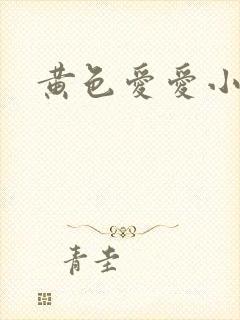 黄色爱爱小
青圭